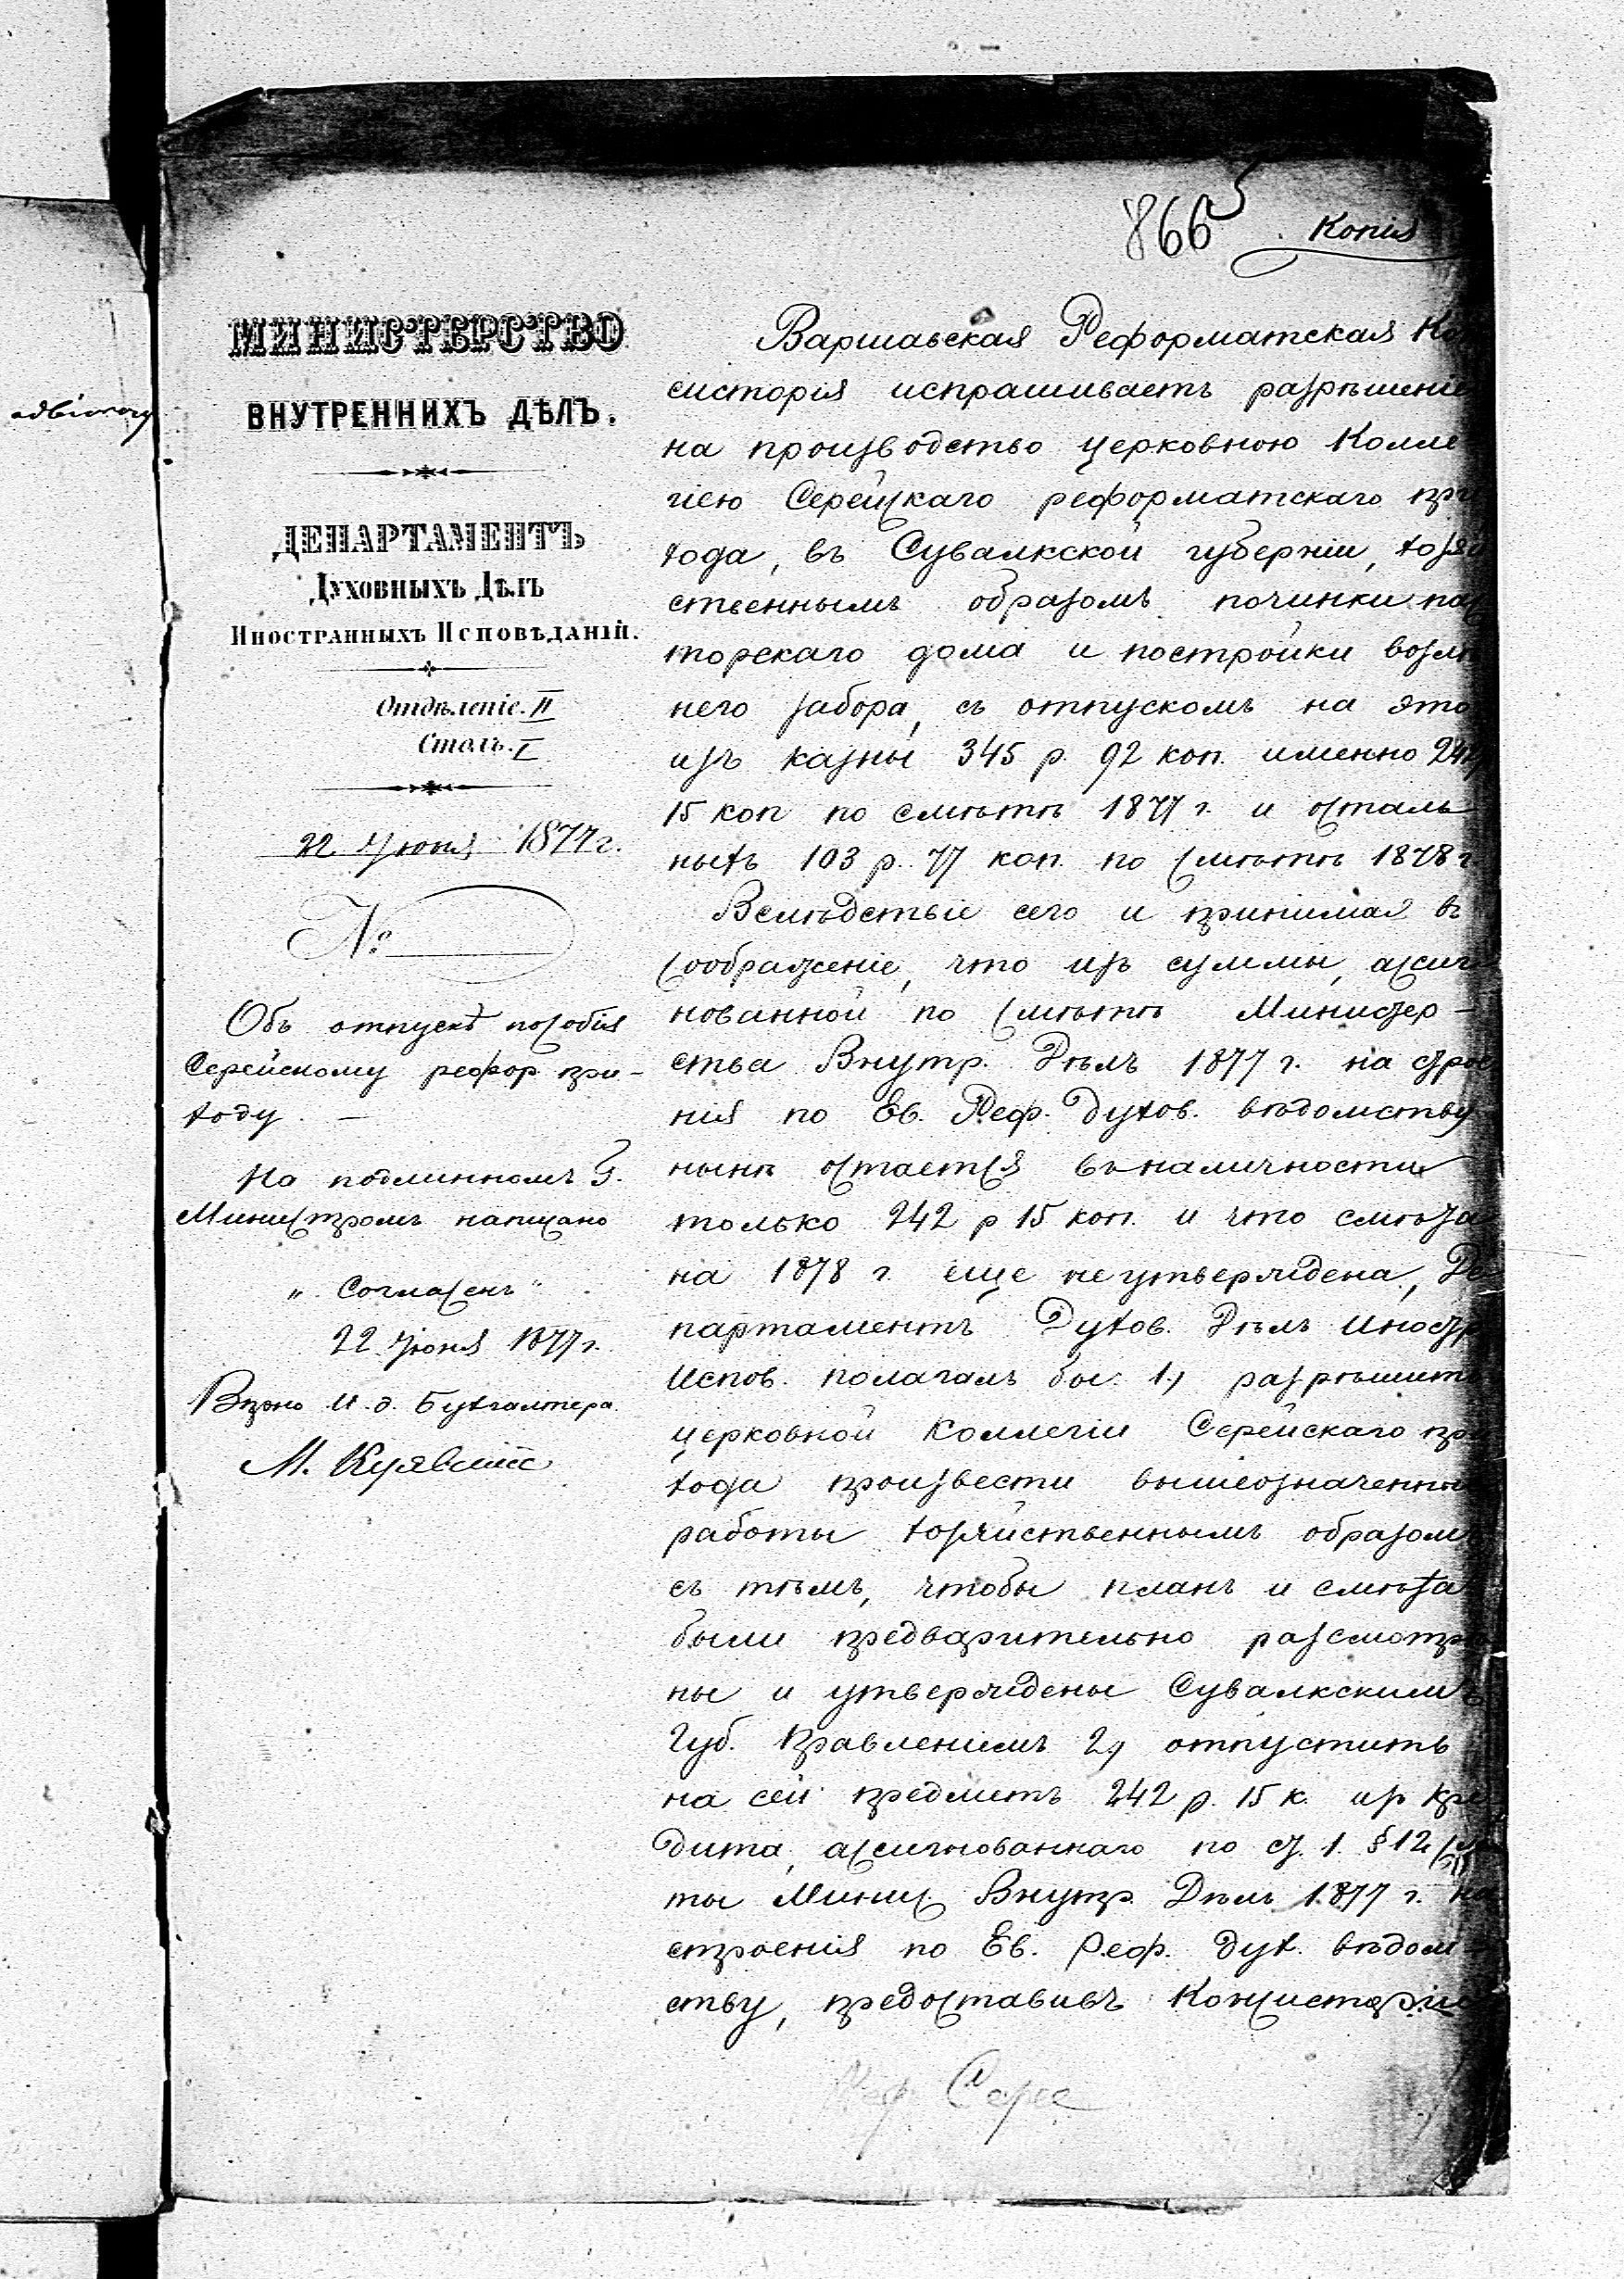 866
Копія
МИНИСТЕРСТВО
ВНУТРЕННИХЪ ДѢЛЪ.
ДЕПАРТАМЕНТЪ
Духовныхъ Дѣлъ
Иностранныхъ Исповѣданій.
Отдѣленіе. II
Столъ. I
22 Іюня 1877 г.
№
Объ отпускѣ пособія
Серейскому рефор при-
ходу. —
На подлинномъ Г.
Министромъ написано
„Согласенъ"
22 Іюня 1877 г.
Вѣрно И. д. Бухгалтера
Варшавская Реформатская Ко
систорія испрашиваетъ разрѣшеніе
на производство церковною Колле
гіею Серейскаго реформатскаго при
хода, въ Сувалкской губерніи, хозяй
ственнымъ образомъ починки пас
торскаго дома и постройки возлѣ
него забора, съ отпускомъ на это
изъ казны 345 р. 92 коп. именно 242
15 коп по смѣтѣ 1877 г. и осталь
ныхъ 103 р. 77 коп. по смѣтѣ 1878 г
Вслѣдствіе сего и принимая въ
соображеніе, что изъ суммы, ассиг
нованной по смѣтѣ Министер-
ства Внутр. Дѣлъ 1877 г. на строе
нія по Ев. Реф. Духов. вѣдомству
нынѣ остается въ наличности
только 242 р 15 коп. и что смѣта
на 1878 г. еще не утверждена, Де
партаментъ Духов. Дѣлъ Иностр
Испов. полагалъ бы: 1, разрѣшить
церковной Коллегіи Серейскаго при
хода произвести вышеозначенны
работы хозяйственнымъ образомъ
съ тѣмъ, чтобы планъ и смѣта
были предварительно разсмотрѣ
ны и утверждены Сувалкскимъ
Губ. Правленіемъ 2, отпустить
на сей предметъ 242 р. 15 к. изъ кре
дита, ассигнованнаго по ст. 1. § 12 смѣ
ты Минис. Внутр. Дѣлъ 1877 г. на
строенія по Ев. Реф. Дух. вѣдом
ству, предоставивъ Консисторіи